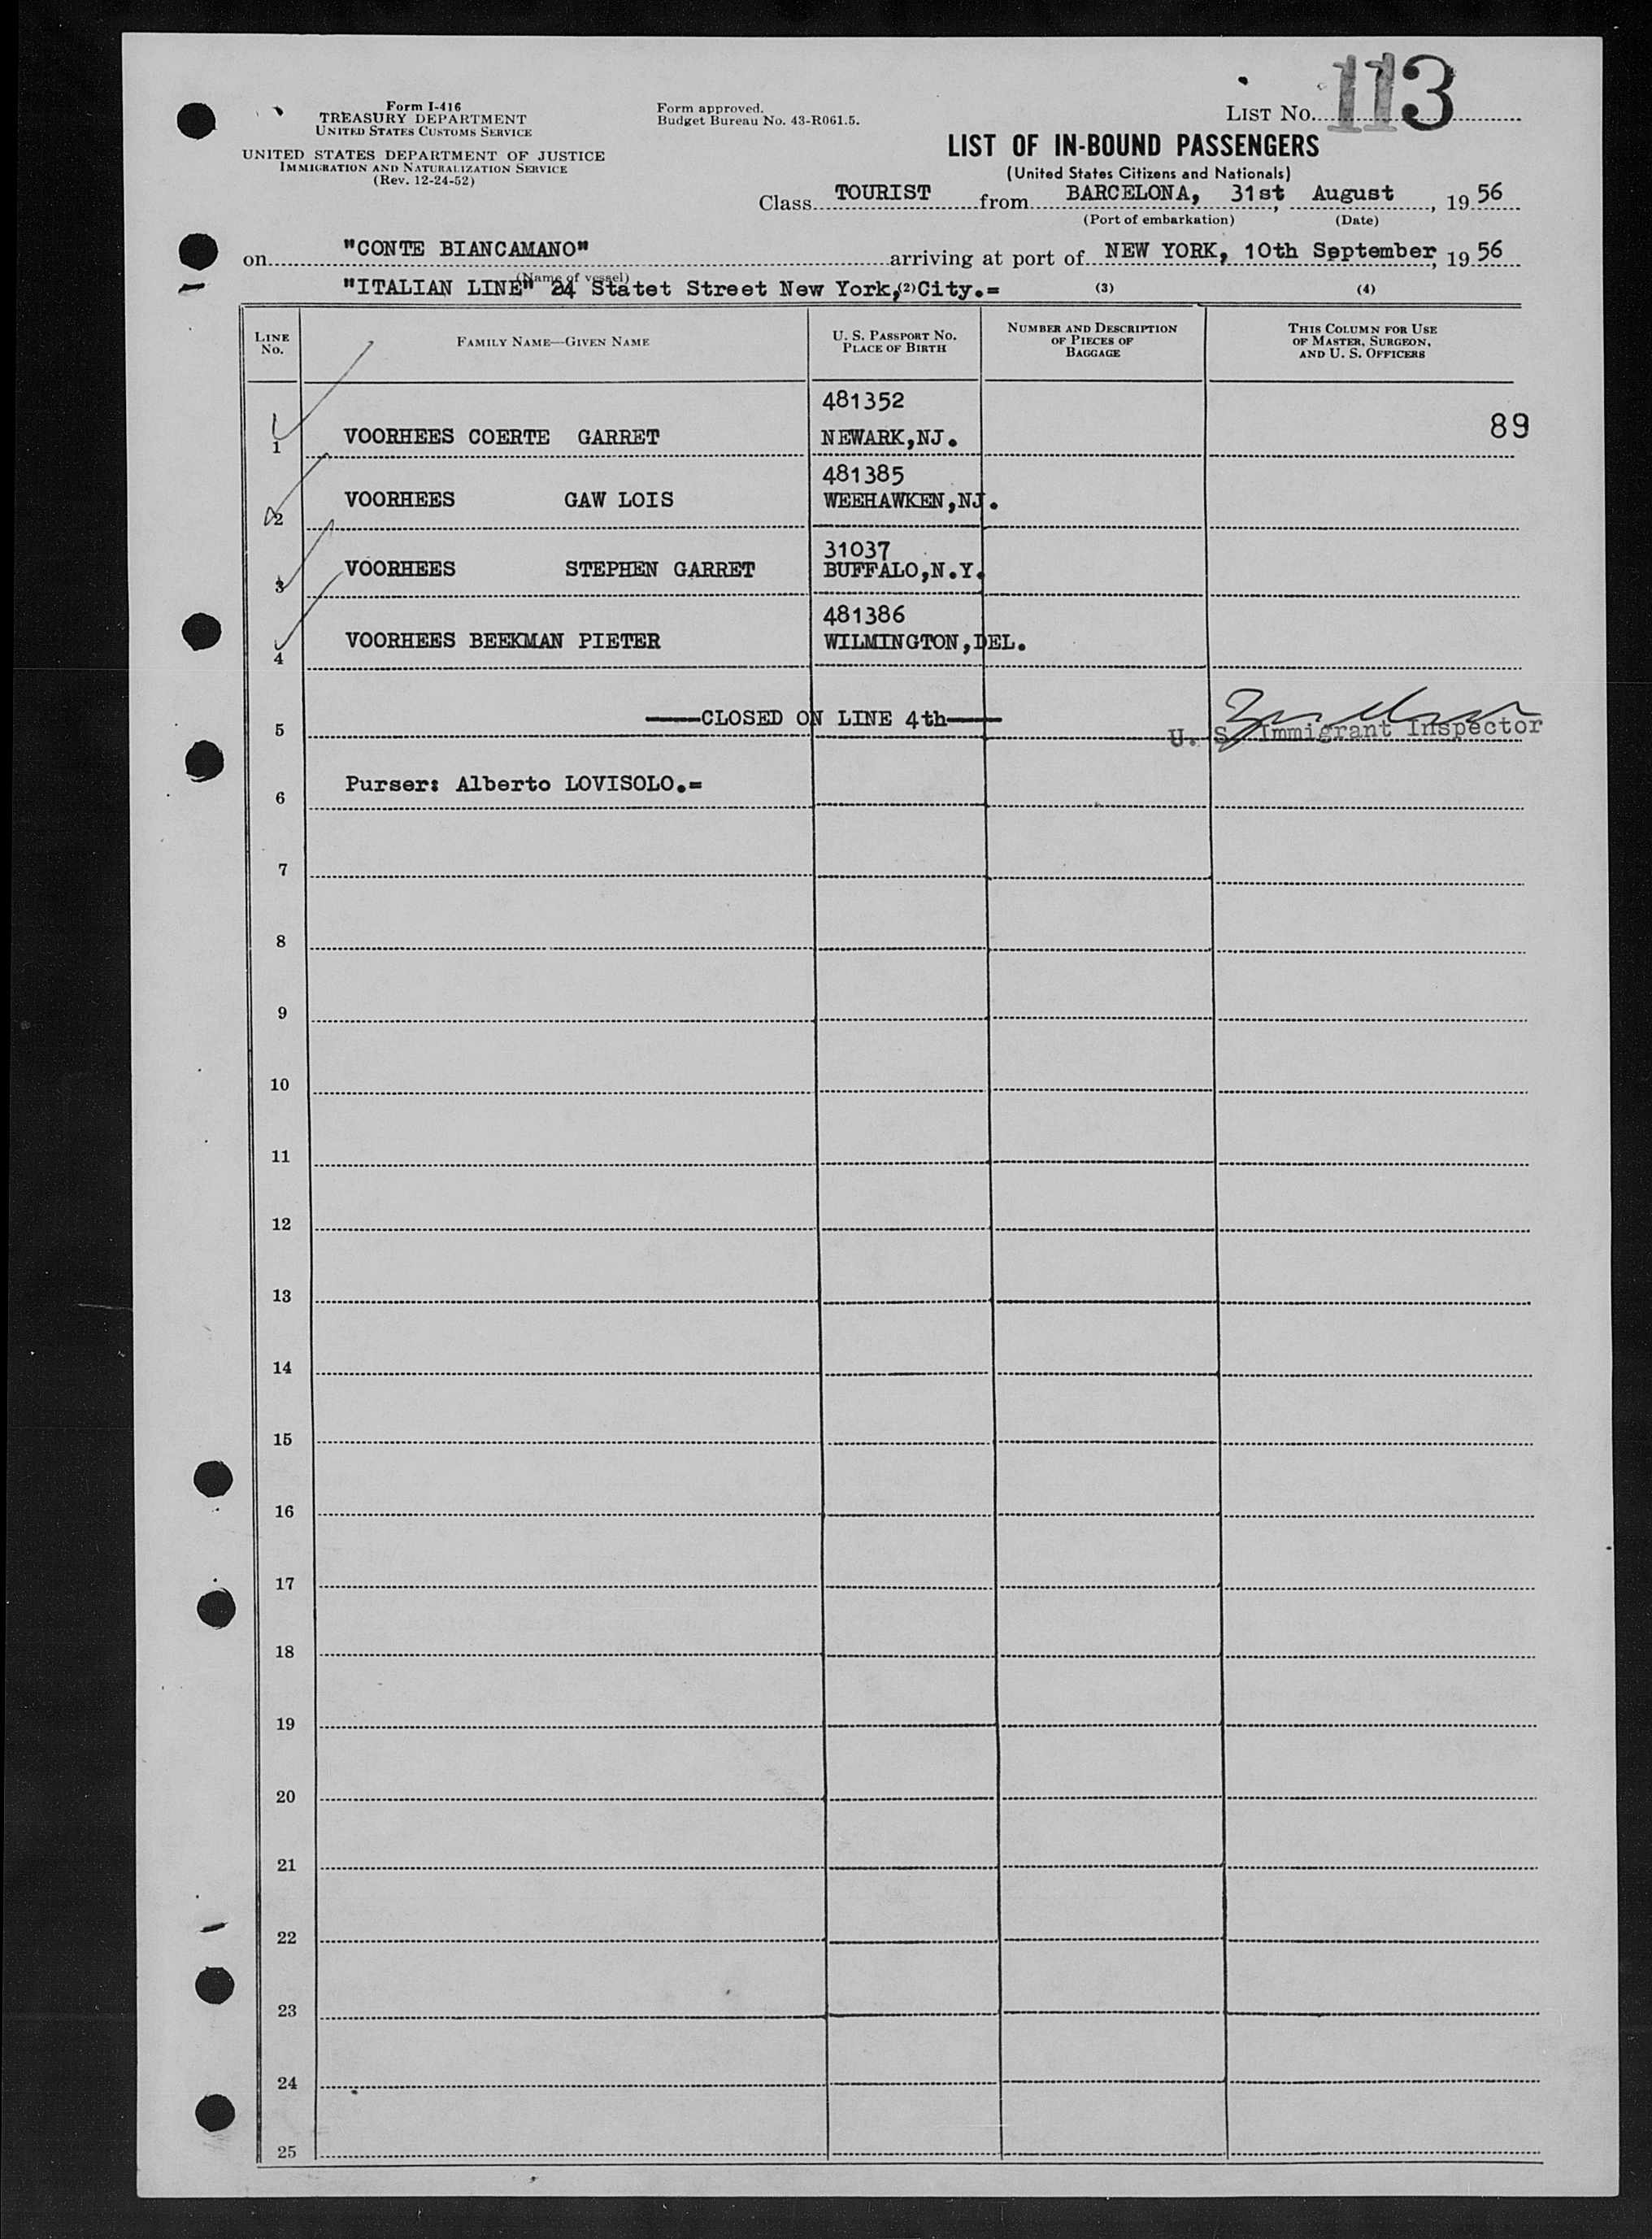 LIST No. 113
Form I-416
TREASURY DEPARTMENT
UNITED STATES CUSTOMS SERVICE
UNITED STATES DEPARTMENT OF JUSTICE
IMMIGRATION AND NATURALIZATION SERVICE
(Rev. 12-24-52)
Form approved.
Budget Bureau No. 43-R061.5.
LIST OF IN-BOUND PASSENGERS
(United States Citizens and Nationals)
Class TOURIST from BARCELONA, 31st August, 19 56
(Port of embarkation) (Date)
on "CONTE BIANCAMANO" arriving at port of NEW YORK, 10th September, 19 56
(Name of vessel)
"ITALIAN LINE" 24 Statet Street New York, (2) City.= (3) (4)
LINE No. FAMILY NAME—GIVEN NAME U. S. PASSPORT No. PLACE OF BIRTH NUMBER AND DESCRIPTION OF PIECES OF BAGGAGE THIS COLUMN FOR USE OF MASTER, SURGEON, AND U. S. OFFICERS
481352
1 VOORHEES COERTE GARRET NEWARK,NJ. 89
481385
2 VOORHEES GAW LOIS WEEHAWKEN,NJ.
31037
3 VOORHEES STEPHEN GARRET BUFFALO,N.Y.
481386
4 VOORHEES BEEKMAN PIETER WILMINGTON,DEL.
5 ——CLOSED ON LINE 4th—— U. S. Immigrant Inspector
6 Purser: Alberto LOVISOLO.=
7
8
9
10
11
12
13
14
15
16
17
18
19
20
21
22
23
24
25